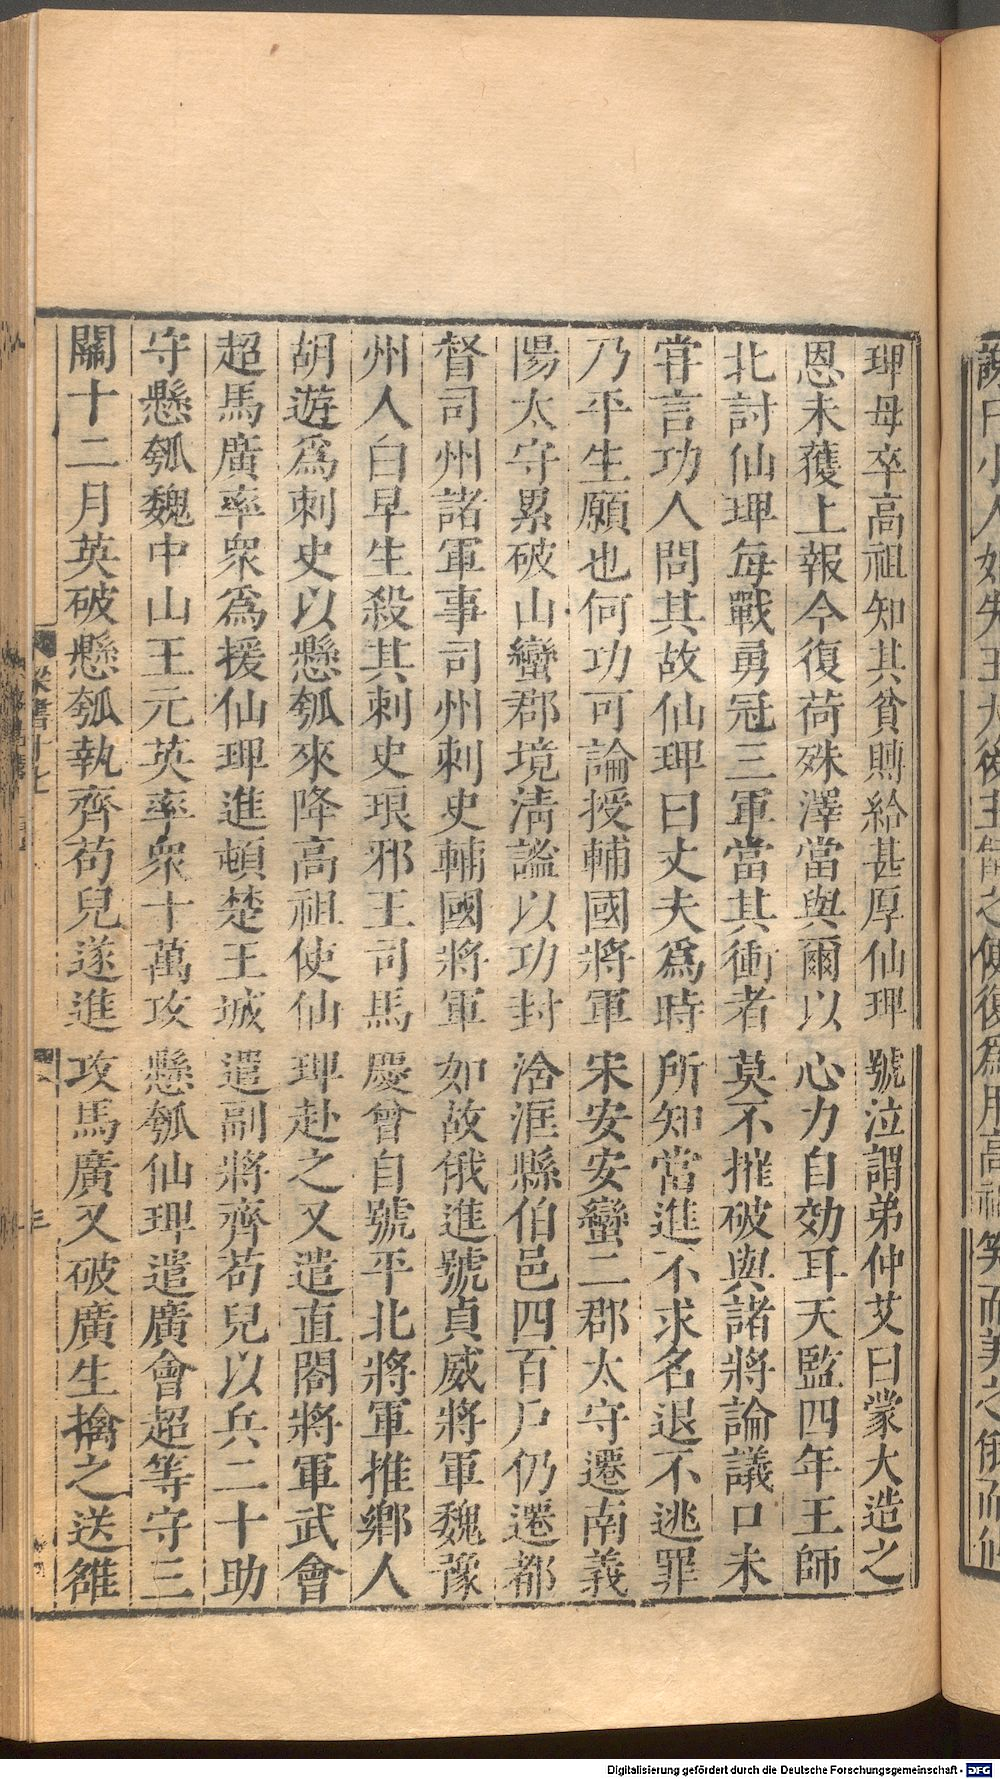 琕母卒高祖知其貧賻給甚厚仙琕號泣謂弟仲艾曰蒙大造之
恩未獲上報今復荷殊澤當與爾以心力自効耳天監四年王師
北討仙琕每戰勇冠三軍當其衝者莫不摧破與諸將論議口未
甞言功人問其故仙琕曰丈夫爲時所知當進不求名退不逃罪
乃平生願也何功可論授輔國將軍宋安安蠻二郡太守遷南義
陽太守累破山蠻郡境淸謐以功封浛洭縣伯邑四百戶仍遷都
督司州諸軍事司州刺史輔國將軍如故俄進號貞威將軍魏豫
州人白早生殺其刺史琅邪王司馬慶曾自號平北將軍推鄉人
胡遊爲刺史以懸瓠來降高祖使仙琕赴之又遣直閤將軍武會
超馬廣率衆爲援仙琕進頓楚王城遣副將齊苟兒以兵二千助
守懸瓠魏中山王元英率衆十萬攻懸瓠仙琕遣廣會超等守三
關十二月英破懸瓠執齊苟兒遂進攻馬廣又破廣生擒之送雒
梁書十七
Digitalisierung gefördert durch die Deutsche Forschungsgemeinschaft - DFG